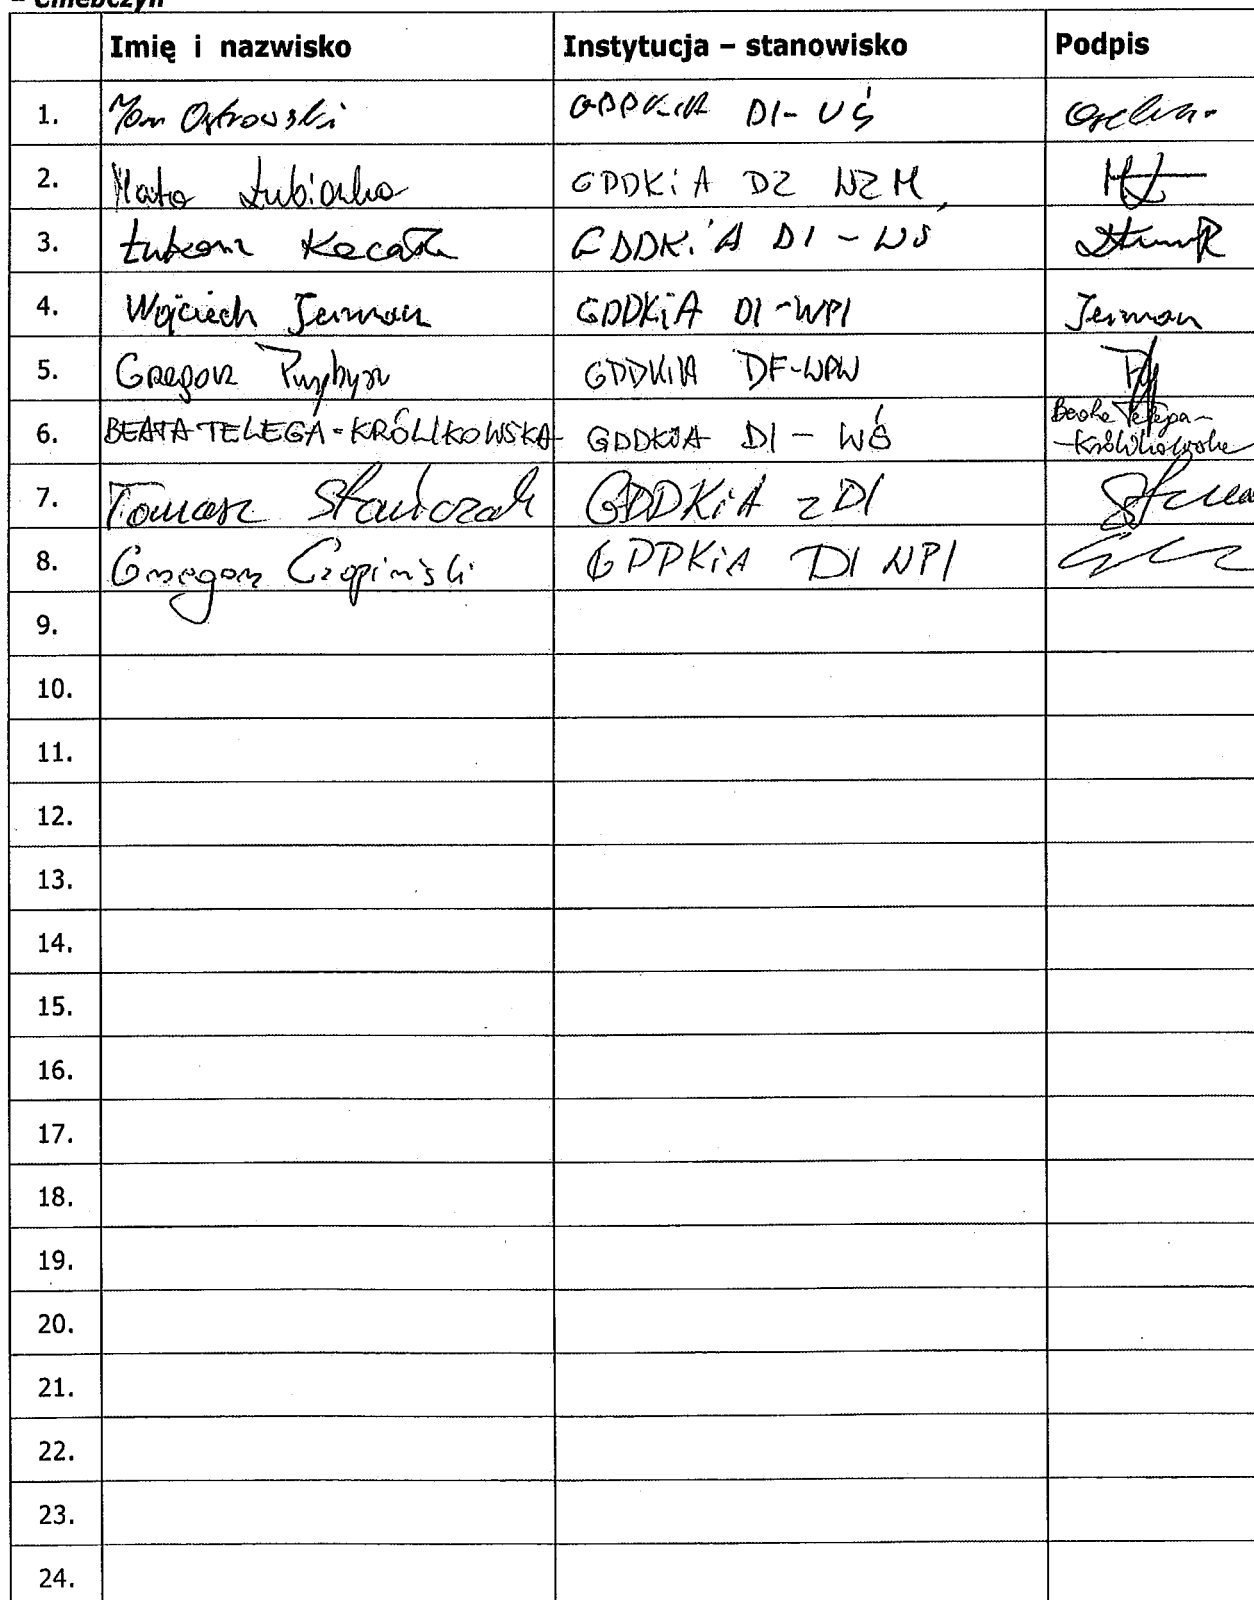 – Chlebczyn
Imię i nazwisko Instytucja – stanowisko Podpis
1. Jan Ostrowski GDDKiA DI-WŚ
2. Łubianka GDDKiA DZ WZM
3. Łukasz GDDKiA DI - WŚ
4. Wojciech Jerman GDDKiA DI-WPI Jerman
5. Grzegorz GDDKiA DF-WPW
6. BEATA TELEGA-KRÓLIKOWSKA GDDKiA DI - WŚ Beata Telega-
-Królikowska
7. Tomasz Stańczak GDDKiA zDI
8. Grzegorz Czopiński GDDKiA DI WPI
9.
10.
11.
12.
13.
14.
15.
16.
17.
18.
19.
20.
21.
22.
23.
24.